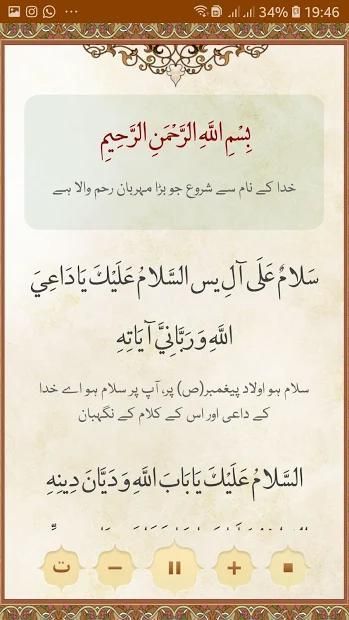 34% 19:46
بِسْمِ اللَّهِ الرَّحْمَنِ الرَّحِيمِ
خدا کے نام سے شروع جو بڑا مہربان رحم والا ہے
سَلَامٌ عَلَى آلِ يس السَّلَامُ عَلَيْكَ يَا دَاعِيَ
اللَّهِ وَ رَبَّانِيَّ آيَاتِهِ
سلام ہو اولاد پیغمبر(ص) پر، آپ پر سلام ہو اے خدا
کے داعی اور اس کے کلام کے نگہبان
السَّلَامُ عَلَيْكَ يَا بَابَ اللَّهِ وَ دَيَّانَ دِينِهِ
ت